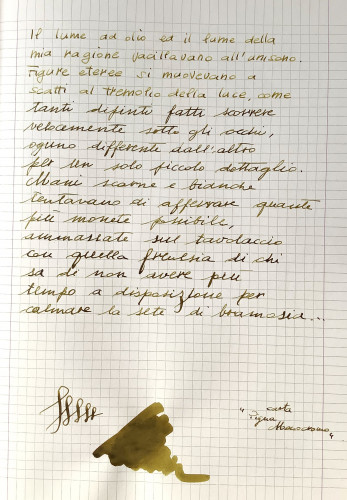 Il lume ad olio ed il lume della
mia ragione vacillavano all'unisono.
Figure eteree si muovevano a
scatti al tremolio della luce, come
tanti dipinti fatti scorrere
velocemente sotto gli occhi,
ognuno differente dall'altro
per un solo piccolo dettaglio.
Mani scarne e bianche
tentavano di afferrare quante
più monete possibile,
ammassate sul tavolaccio
con quella frenesia di chi
sa di non avere più
tempo a disposizione per
calmare la sete di bramosia...
"carta
Pigna